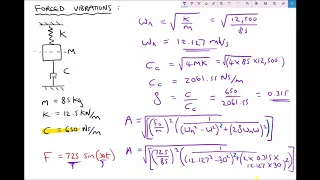 FORCED VIBRATIONS :
K
M
C
M = 85 kg
K = 12.5 kN/m
C = 650 Ns/m
F = 725 sin(30t)
ωn = √(K/M) = √(12,500/85)
ωn = 12.127 rad/s
Cc = √(4MK) = √(4 x 85 x 12,500)
Cc = 2061.55 Ns/m
ζ = C/Cc = 650/2061.55 = 0.315
A = √((F0/M)² 1/((ωn² - ω²)² + (2ζωnω)²))
A = √((725/85)² 1/((12.127² - 30²)² + (2 x 0.315 x 12.127 x 30)²))